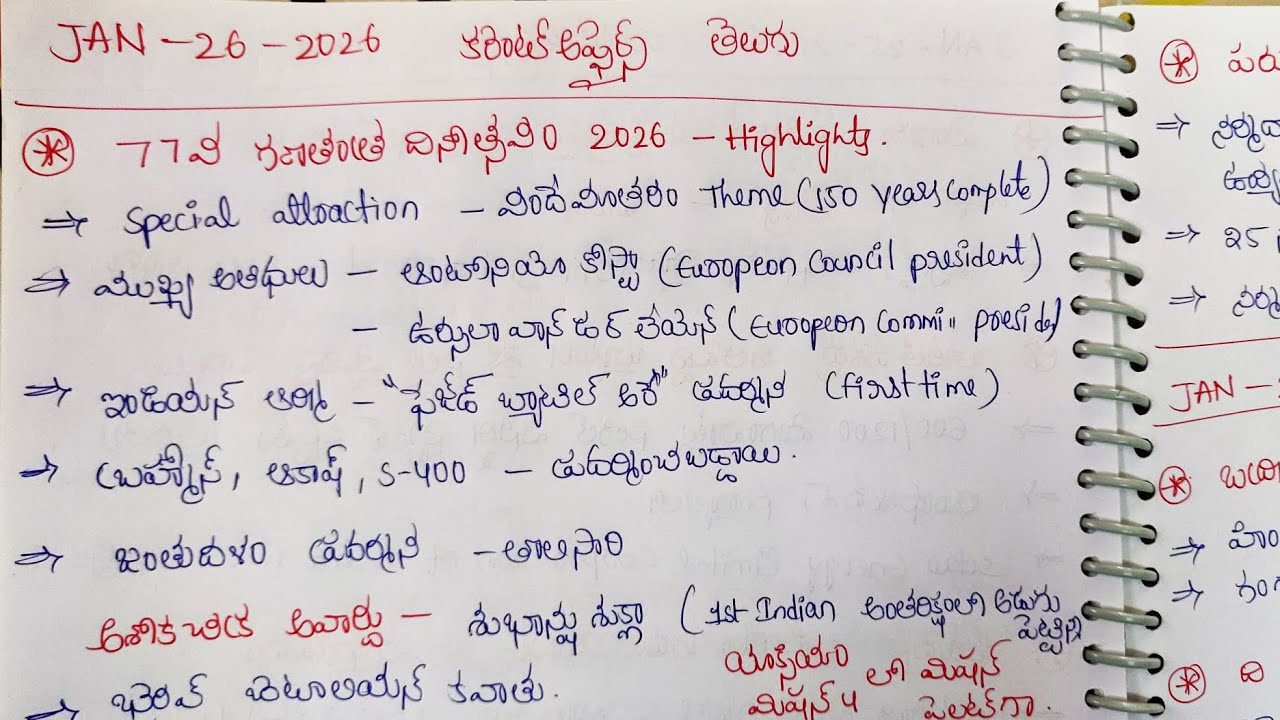 JAN - 26 - 2026 కరెంట్ అఫైర్స్ తెలుగు
77వ గణతంత్ర దినోత్సవం 2026 - Highlights.
⇒ Special attraction - వందేమాతరం Theme (150 years complete)
⇒ ముఖ్య అతిథులు - ఆంటోనియో కోస్టా (European Council president)
- ఉర్సులా వాన్ డర్ లేయెన్ (European Commi"
⇒ ఇండియన్ ఆర్మీ - "ఫేజ్డ్ బ్యాటిల్ అరే" ప్రదర్శన (first time)
⇒ బ్రహ్మోస్, ఆకాష్, S-400 - ప్రదర్శించబడ్డాయి.
⇒ జంతుదళం ప్రదర్శన - తొలిసారి
అశోక చక్ర అవార్డు - శుభాన్షు శుక్లా (1st Indian అంతరిక్షంలో అడుగు పెట్టిన
యాక్సియం లో మిషన్
మిషన్ 4 పైలట్ గా.
⇒ భైరవ్ బెటాలియన్ కవాతు.
⇒ 25
JAN -
⇒ గంగ